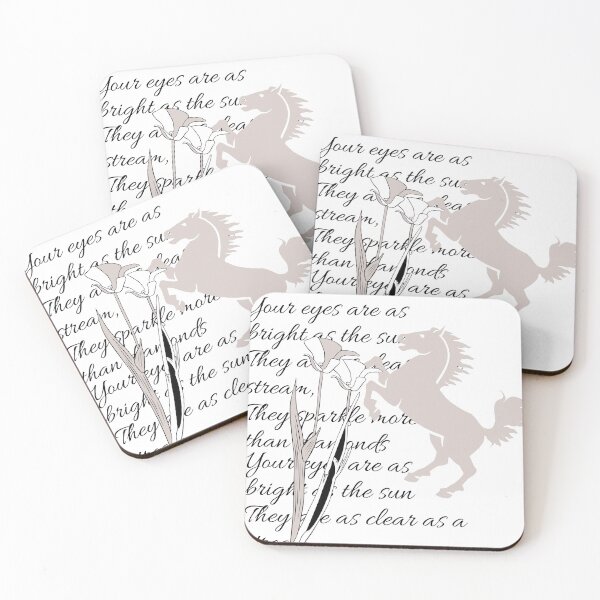 Your eyes are as
bright as the sun
They
stream,
They
Your eyes are as
bright as the sun
They
stream,
They sparkle more
than diamonds
Your eyes are as
Your eyes are as
bright as the sun
They
stream,
They sparkle more
than diamonds
Your eyes are as
bright as the sun
They are as clear
Your eyes are as
bright as the sun
They
stream,
They sparkle more
than diamonds
Your eyes are as
bright as the sun
They are as clear as a